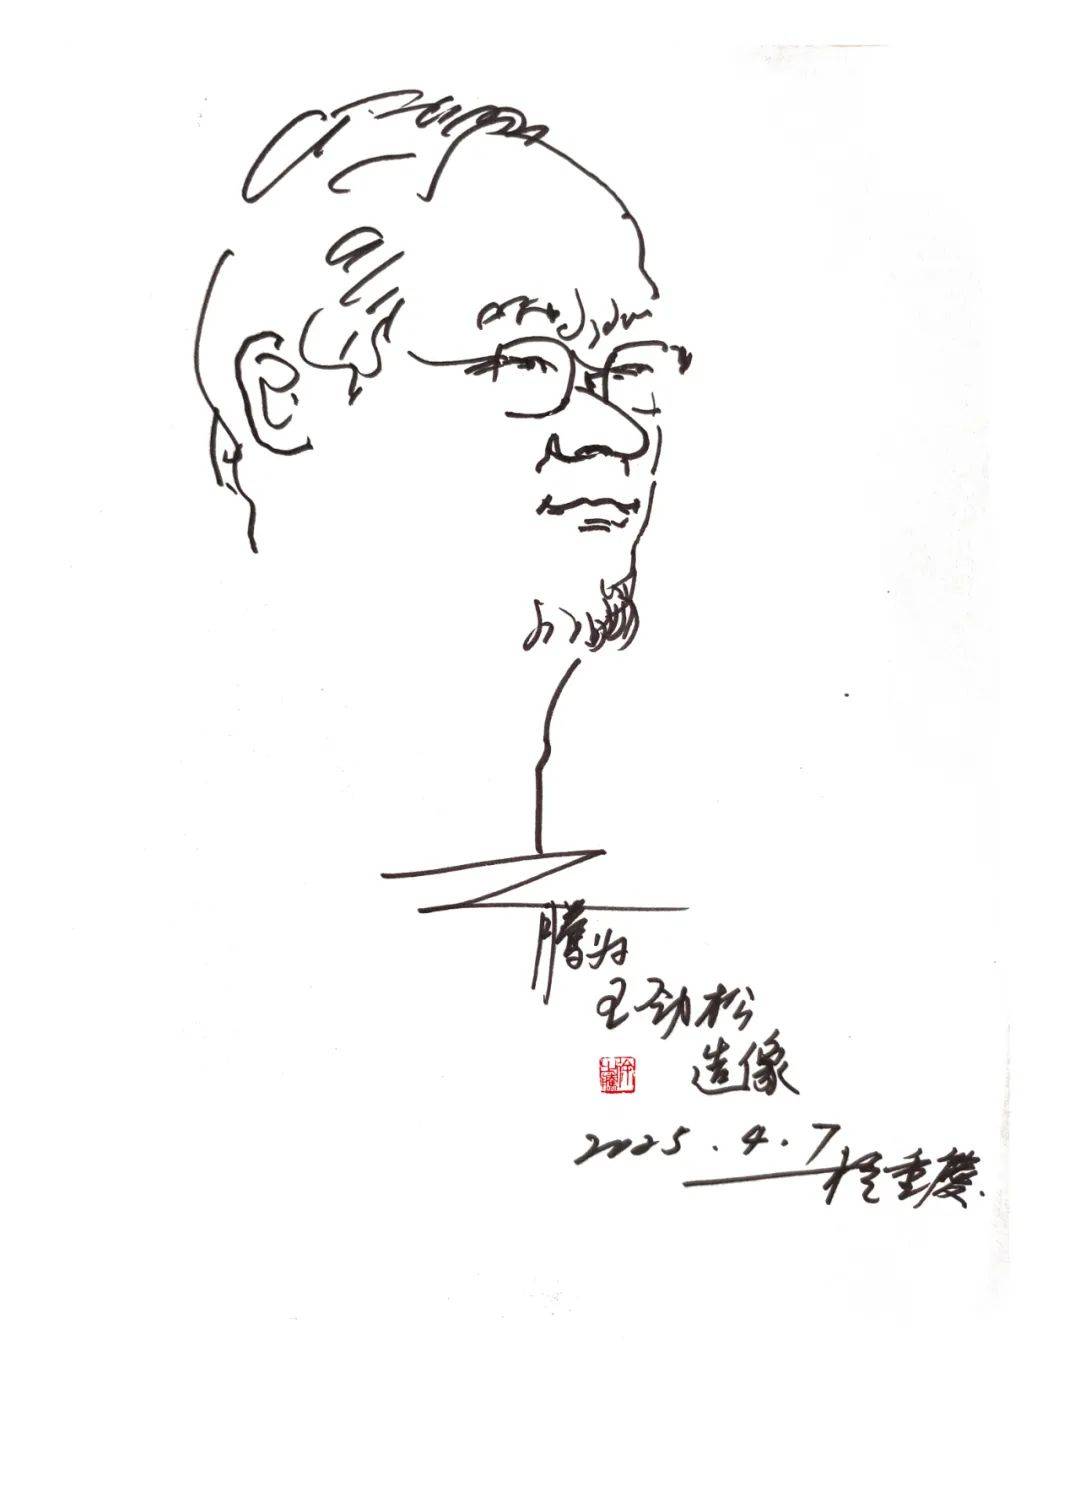 腾为
王劲松
造像
2025.4.7
于重庆.